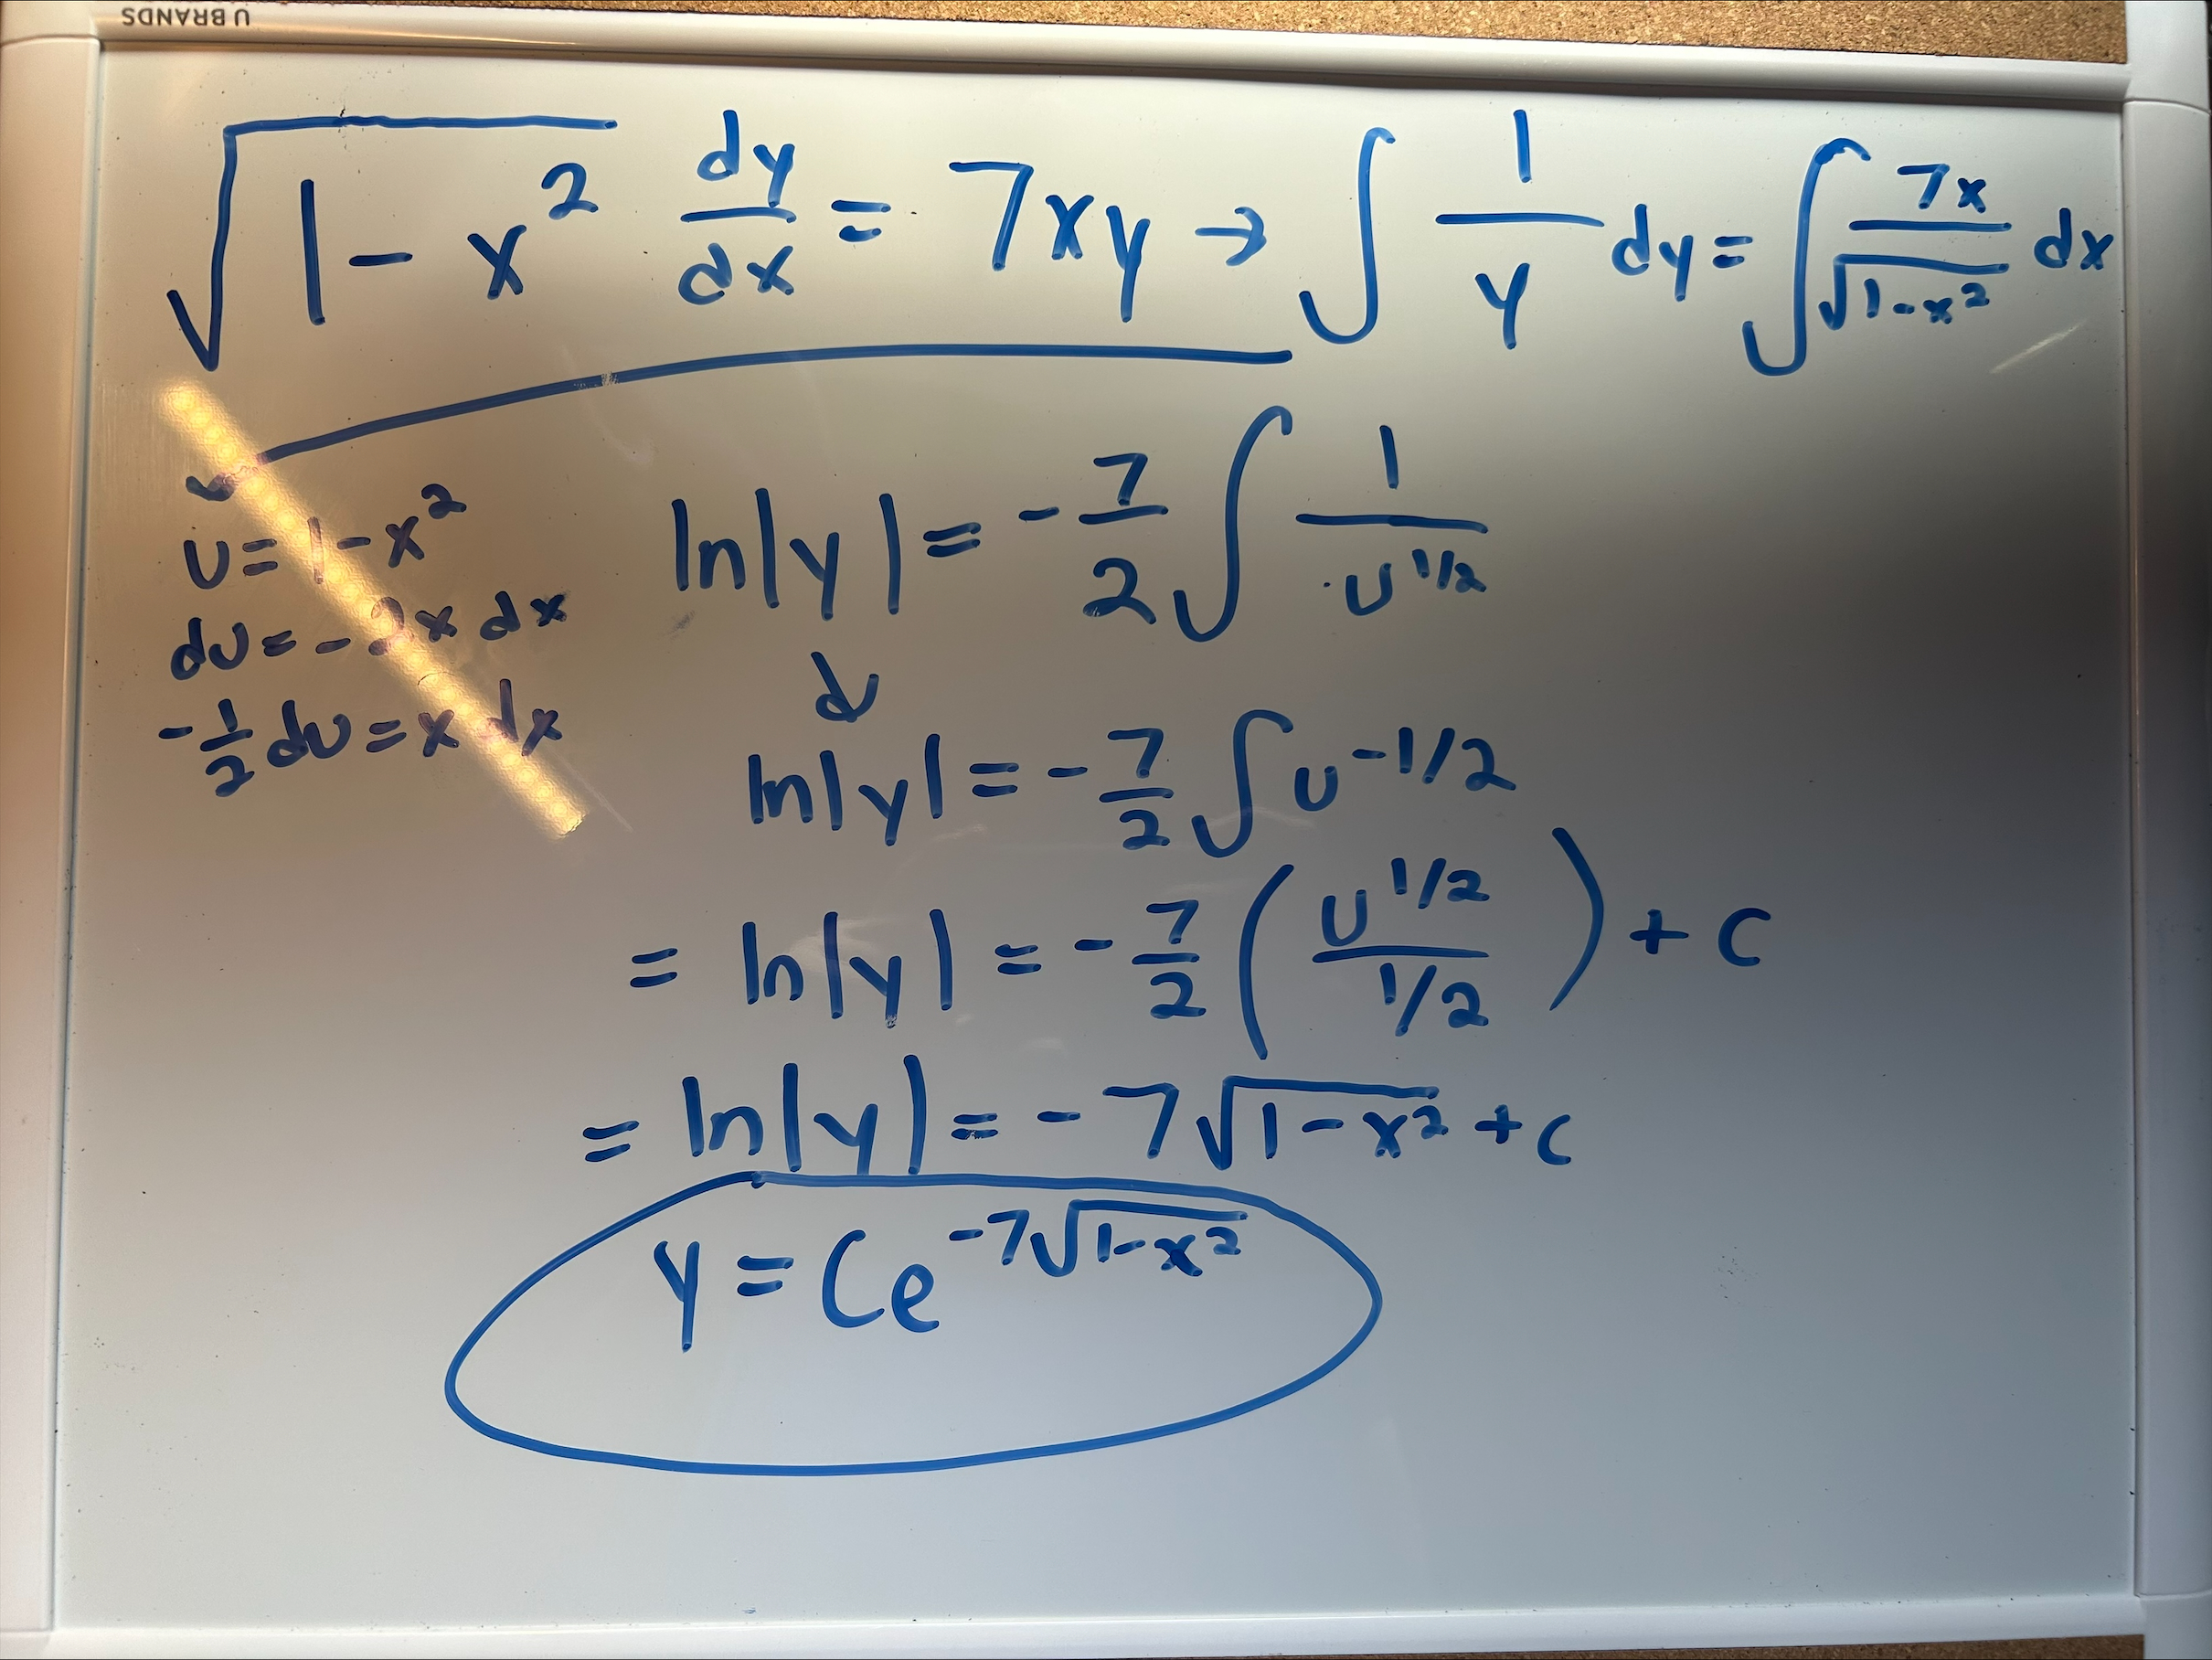 U BRANDS
√(1 - x²) dy/dx = 7xy → ∫ 1/y dy = ∫ 7x/√(1-x²) dx
u = 1-x²
du = -2x dx
-1/2 du = x dx
ln|y| = -7/2 ∫ 1/u^1/2
↓
ln|y| = -7/2 ∫ u^-1/2
= ln|y| = -7/2 (u^1/2 / 1/2) + c
= ln|y| = -7√(1-x²) + c
y = Ce^-7√(1-x²)